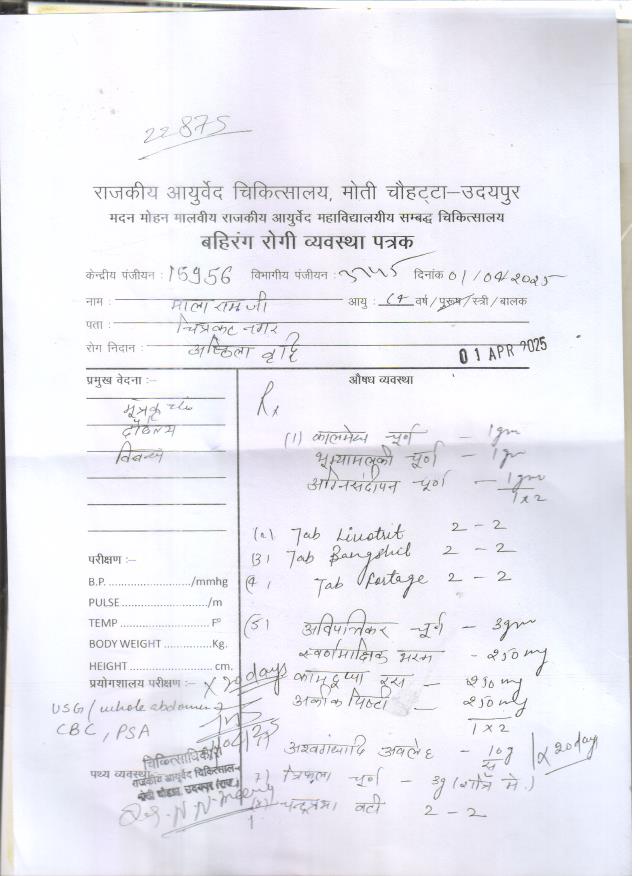 22875
राजकीय आयुर्वेद चिकित्सालय, मोती चौहट्टा–उदयपुर
मदन मोहन मालवीय राजकीय आयुर्वेद महाविद्यालयीय सम्बद्ध चिकित्सालय
बहिरंग रोगी व्यवस्था पत्रक
केन्द्रीय पंजीयन : 15956 विभागीय पंजीयन : दिनांक 01/04/2025
नाम : माला राम जी आयु : वर्ष/पुरूष/स्त्री/बालक
पता : चित्रकूट नगर
रोग निदान : अष्ठिला वृद्धि
01 APR 2025
प्रमुख वेदना :–
औषध व्यवस्था
Rx
मूत्रकृच्छ्र
दौर्बल्य
विबन्ध
(1) कालमेघ चूर्ण – 1gm
भूम्यामलकी चूर्ण – 1gm
अग्निसंदीपन चूर्ण – 1gm
1x2
Tab Livotrit 2 – 2
(3) Tab Bangshil 2 – 2
(4) Tab Fortage 2 – 2
परीक्षण :–
B.P. ......................./mmhg
PULSE......................./m
TEMP ....................... F°
BODY WEIGHT .............Kg.
HEIGHT ....................... cm.
प्रयोगशालय परीक्षण :–
(5) अविपत्तिकर चूर्ण – 3gm
स्वर्णमाक्षिक भस्म – 250mg
कामदुधा रस – 250mg
अकीक पिष्टी – 250mg
1x2
x 20 days
USG/whole abdomen
CBC, PSA
अश्वगंधादि अवलेह – 10g
x 20 day
पथ्य व्यवस्था
चिकित्साधिकारी
राजकीय आयुर्वेद चिकित्सालय
मोती चौहट्टा, उदयपुर (राज.)
7) त्रिफला चूर्ण – 3g (रात्रि में)
चन्द्रप्रभा वटी 2 – 2